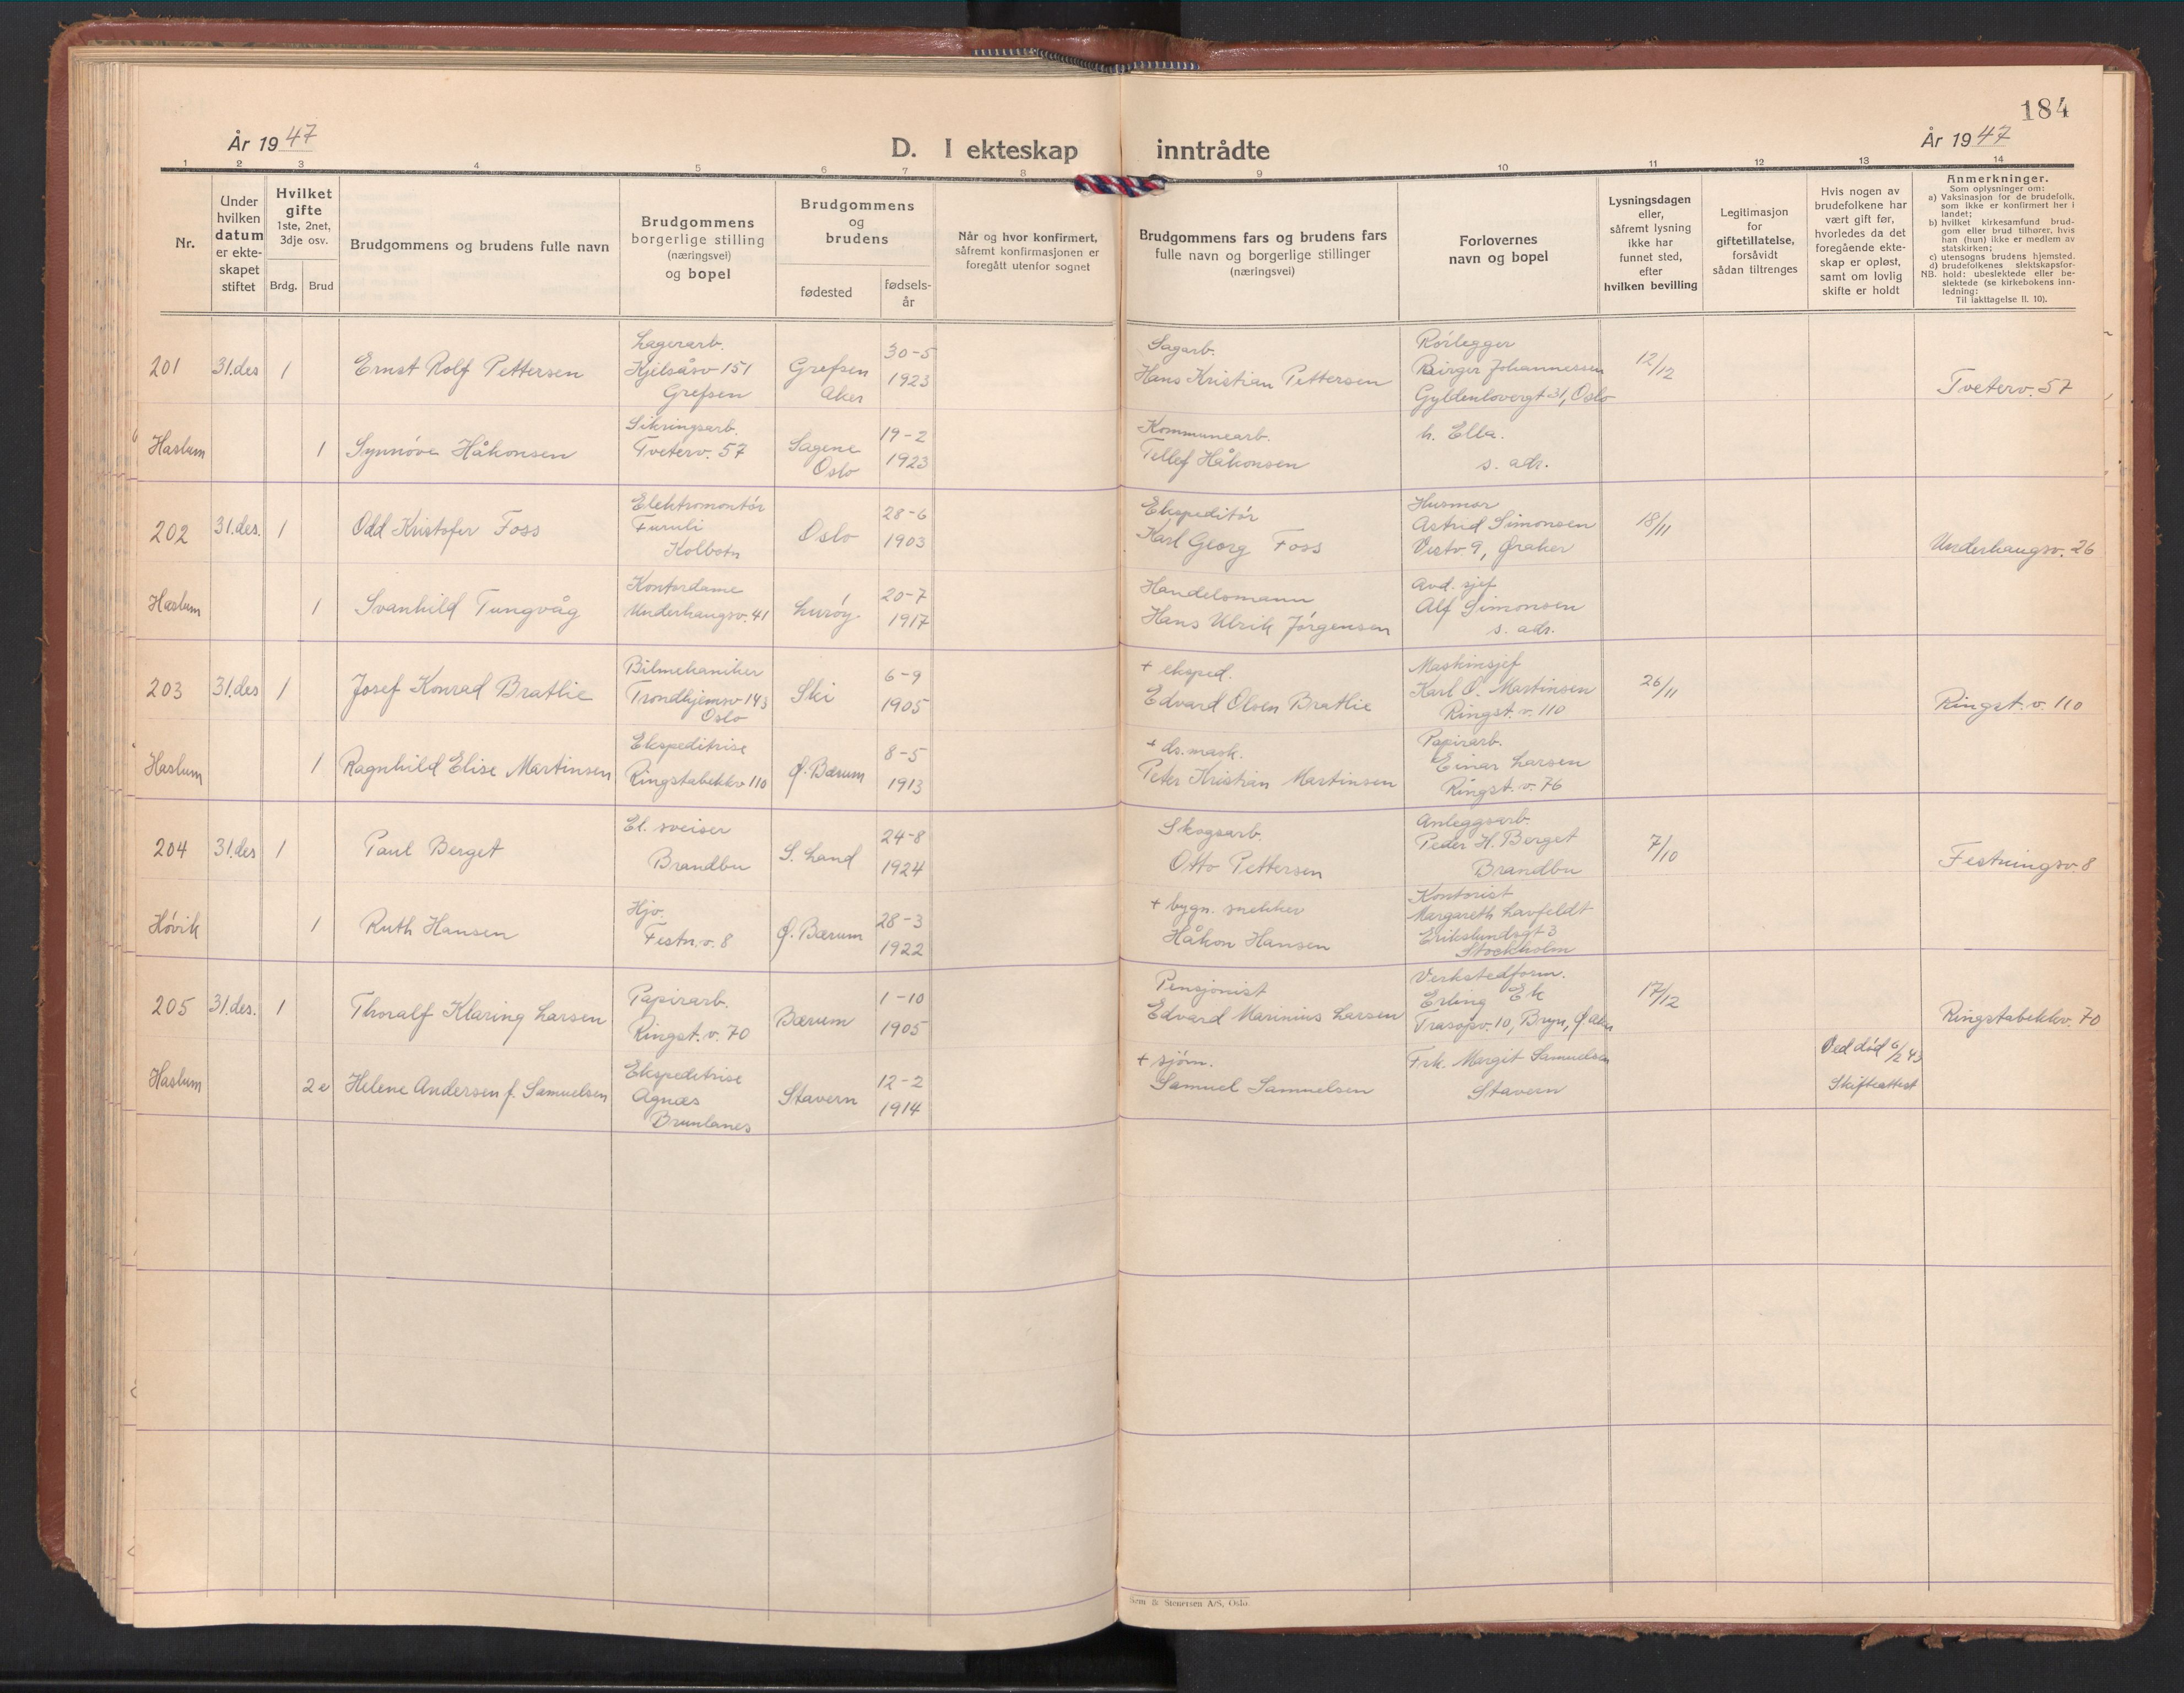 184
År 1947
D. I ekteskap inntrådte
År 1947
1 2 3 4 5 6 7 8 9 10 11 12 13 14
Nr.
Under
hvilken
datum
er ekte-
skapet
stiftet
Hvilket
gifte
1ste, 2net,
3dje osv.
Brdg. Brud
Brudgommens og brudens fulle navn
Brudgommens
borgerlige stilling
(næringsvei)
og bopel
Brudgommens
og
brudens
fødested
fødsels-
år
Når og hvor konfirmert,
såfremt konfirmasjonen er
foregått utenfor sognet
Brudgommens fars og brudens fars
fulle navn og borgerlige stillinger
(næringsvei)
Forlovernes
navn og bopel
Lysningsdagen
eller,
såfremt lysning
ikke har
funnet sted,
efter
hvilken bevilling
Legitimasjon
for
giftetillatelse,
forsåvidt
sådan tiltrenges
Hvis nogen av
brudefolkene har
vært gift før,
hvorledes da det
foregående ekte-
skap er opløst,
samt om lovlig
skifte er holdt
Anmerkninger.
Som oplysninger om:
a) Vaksinasjon for de brudefolk,
som ikke er konfirmert her i
landet;
b) hvilket kirkesamfund brud-
gom eller brud tilhører, hvis
han (hun) ikke er medlem av
statskirken;
c) utensogns brudens hjemsted.
d) brudefolkenes slektskapsfor-
NB. hold: ubeslektede eller be-
slektede (se kirkebokens inn-
ledning:
Til iakttagelse II. 10).
201 31.des 1 Ernst Rolf Pettersen
Lagerarb.
Kjelsåsv 151
Grefsen
Grefsen
Aker
30-5
1923
Sagarb.
Hans Kristian Pettersen
Rørlegger
Birger Johannessen
Gyldenløvergt 31, Oslo
12/12
Tveterv. 57
Haslum 1 Synnøve Håkonsen
Sikringsarb.
Tveterv. 57
Sagene
Oslo
19-2
1923
Kommunearb.
Tellef Håkonsen
h. Ella.
s. adr.
202 31.des. 1 Odd Kristofer Foss
Elektromontør
Furuli
Kolbotn
Oslo
28-6
1903
Ekspeditør
Karl Georg Foss
Husmor
Astrid Simonsen
Vestv 9, Øraker
18/11
Underhaugsv. 26
Haslum 1 Svanhild Tungvåg
Kontordame
Underhaugsv. 41
Lurøy
20-7
1917
Handelsmann
Hans Ulrik Jørgensen
Avd. sjef
Alf Simonsen
s. adr.
203 31.des 1 Josef Konrad Bratlie
Bilmekaniker
Trondhjemsv 143
Oslo
Ski
6-9
1905
+ eksped.
Edvard Olsen Bratlie
Maskinsjef
Karl O. Martinsen
Ringst. v. 110
26/11
Ringst. v. 110
Haslum 1 Ragnhild Elise Martinsen
Ekspeditrise
Ringstabekkv 110
Ø. Bærum
8-5
1913
+ ds. mask.
Peter Kristian Martinsen
Papirarb.
Einar Larsen
Ringst. v. 76
204 31.des 1 Paul Berget
El. sveiser
Brandbu
S. Land
24-8
1924
Skogsarb.
Otto Pettersen
Anleggsarb.
Peder H. Berget
Brandbu
7/10
Festningsv. 8
Høvik 1 Ruth Hansen
Hjv.
Festn. v. 8
Ø. Bærum
28-3
1922
+ bygn. snekker
Håkon Hansen
Kontorist
Margareth Lavfeldt
Erikslundsgt 3
Stockholm
205 31.des. 1 Thoralf Klaring Larsen
Papirarb.
Ringst. v. 70
Bærum
1-10
1905
Pensjonist
Edvard Marinius Larsen
Verkstedform.
Erling Ek
Trasopv. 10, Bryn, Ø. Aker
17/12
Ringstabekkv. 70
Haslum 2e Helene Andersen f. Samuelsen
Ekspeditrise
Agnæs
Brunlanes
Stavern
12-2
1914
+ sjøm.
Samuel Samuelsen
Frk. Margit Samuelsen
Stavern
Ved død 6/2 43
Skifteattest
& Stenersen A/S, Oslo.